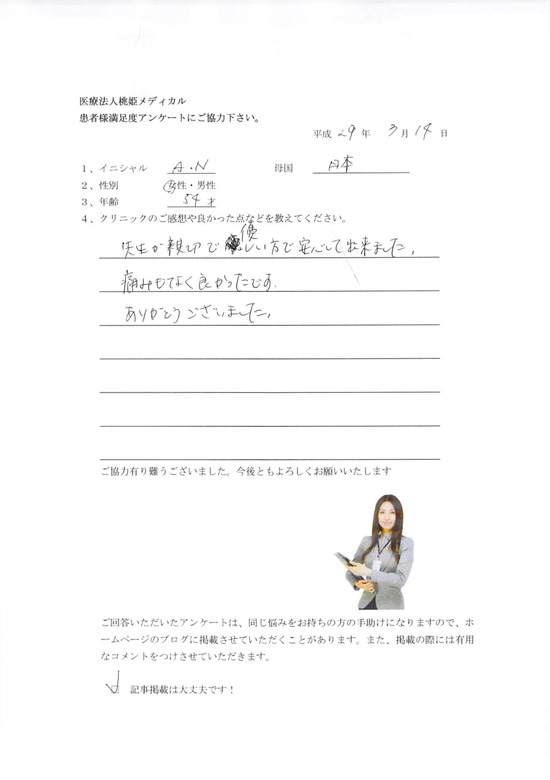 医療法人桃姫メディカル
患者様満足度アンケートにご協力下さい。
平成 29 年 3 月 14 日
1、イニシャル A.N 母国 日本
2、性別 女性・男性
3、年齢 54才
4、クリニックのご感想や良かった点などを教えてください。
先生が親切で優しい方で安心して出来ました。
痛みもなく良かったです。
ありがとうございました。
ご協力有り難うございました。今後ともよろしくお願いいたします
ご回答いただいたアンケートは、同じ悩みをお持ちの方の手助けになりますので、ホ
ームページのブログに掲載させていただくことがあります。また、掲載の際には有用
なコメントをつけさせていただきます。
記事掲載は大丈夫です！